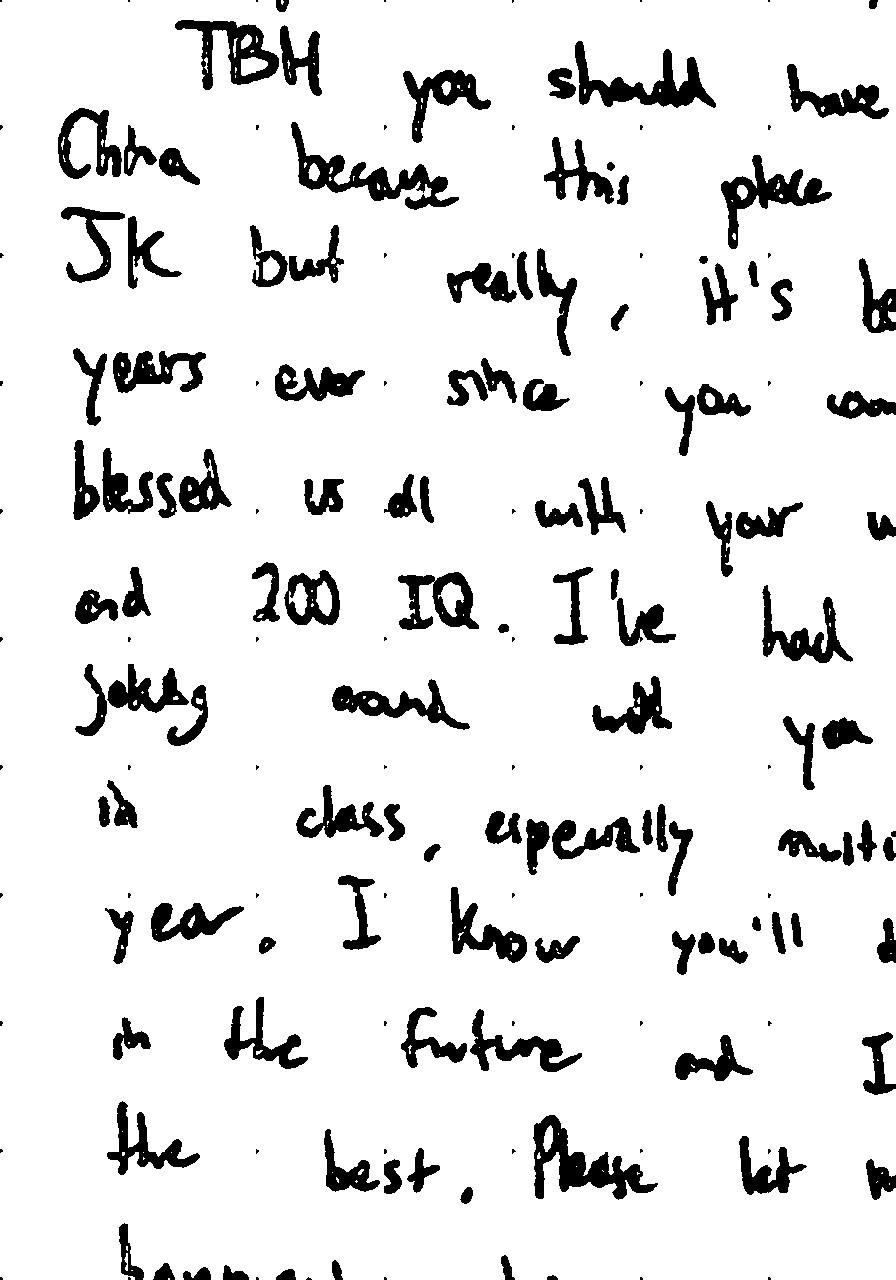 TBH you should have
China because this place
JK but really, it's be
years ever since you came
blessed us all with your w
and 200 IQ. I've had
joking around with you
in class, especially multi
year. I know you'll d
in the future and I
the best. Please let m